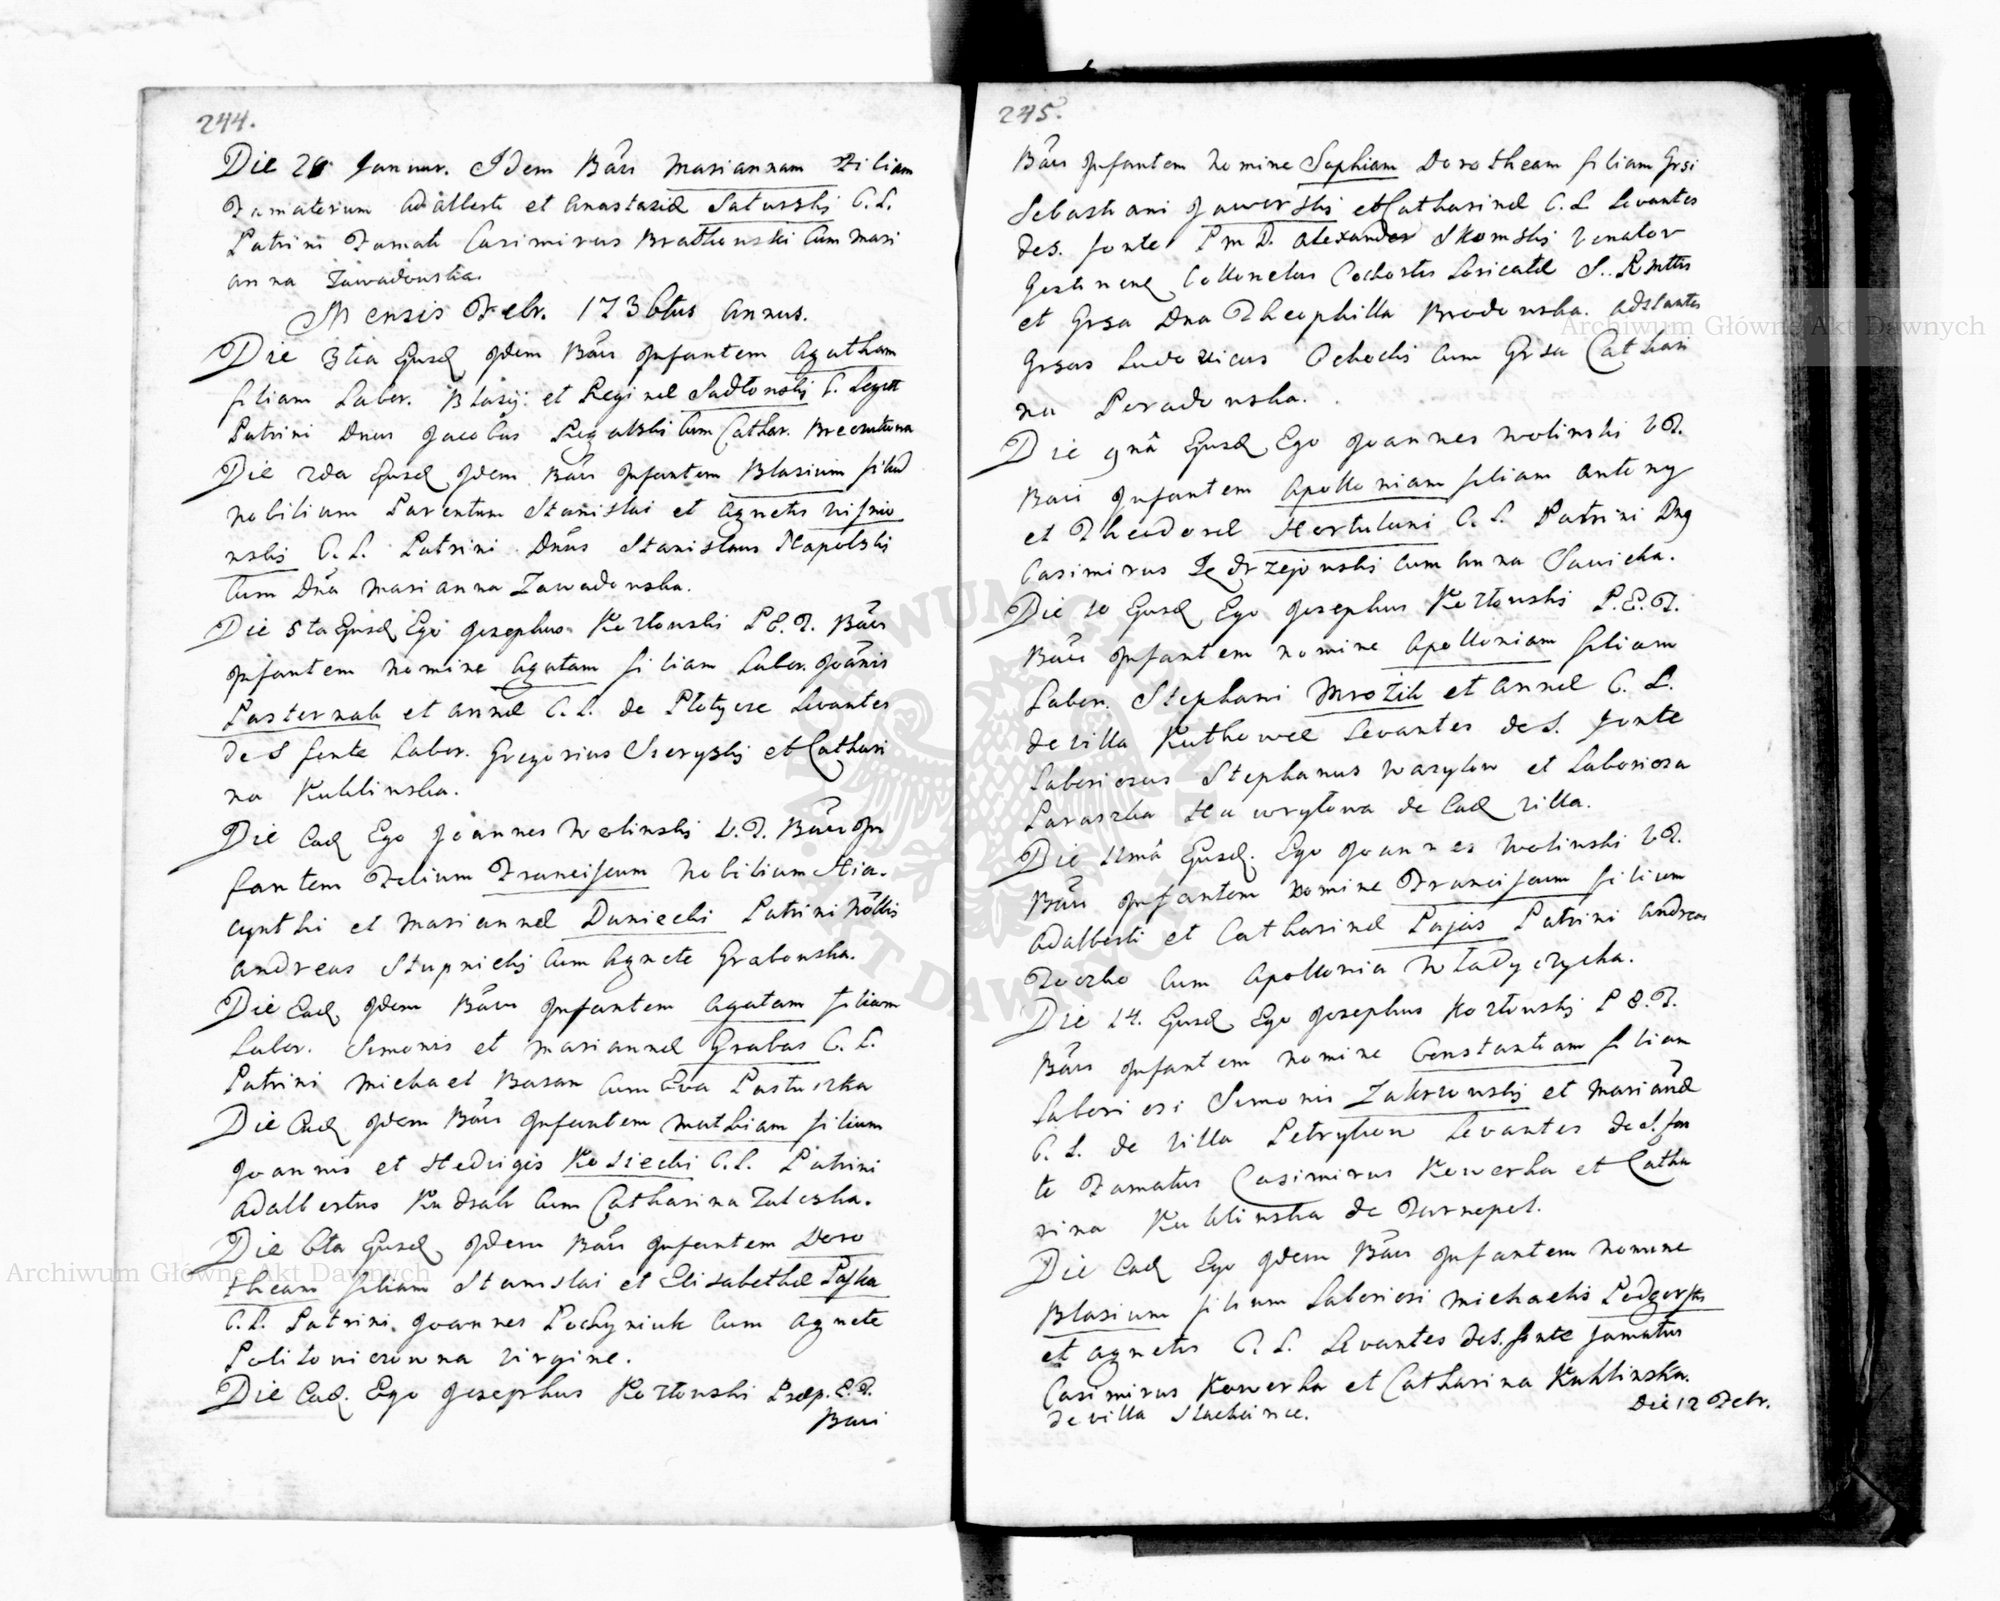 244.
Die 26 Januar. Idem Baūi Mariannam Filiam
Famatorum Adalberti et Anastasiæ Saturski C. L.
Patrini Famati Casimirus Bratkowski Cum Mari
anna Zawadowska.
Mensis Febr. 1736tus Annus.
Die 3tia Ejusd Idem Baūi Infantem Agatham
filiam Labor. Blasij et Reginæ Sadłowski C. Legitt
Patrini Dnus Jacobus Rogalski Cum Cathar.
Die 2da Ejusd Idem Baūi Infantem Blasium
nobilium Parentum Stanislai et Agnetis Wiśnio
wski C. L. Patrini Dnūs Stanislaus Napolski
Cum Dnā Marianna Zawadowska.
Die 5ta Ejusd Ego Josephus Kozłowski P. E. T. Baūi
Infantem nomine Agatam filiam Labor. Joānis
Pasternak et Annæ C. L. de Płotycze Levantes
de S fonte Labor. Gregorius et Cathari
na Kuklinska.
Die Ead Ego Joannes Wolinski V. T. Baūi In
fantem Felium Franciscum Nobilium Hia-
cynthi et Mariannæ Daniecki Patrini Nōbles
Andreas Stupnicki Cum Agnete Grabowska.
Die Ead Idem Baūi Infantem Agatam filiam
Labor. Simonis et Mariannæ Grabas C. L.
Patrini Michael Basan Cum Eva Pastuszka
Die Ead Idem Baūi Infantem Mathiam filium
Joannis et Hedvigis Kosiecki C. L. Patrini
Adalbertus Kudrak Cum Catharina Zaleska.
Die 6ta Ejusd Idem Baūi Infantem Doro
theam filiam Stanislai et Elisabethæ Paska
C. L. Patrini Joannes Pochyniuk Cum Agnete
Politowiczowna Virgine.
Die Ead. Ego Josephus Kozłowski Præp. E. T.
Baui
245.
Baūi Infantem Nomine Sophiam Dorotheam filiam Grsi
Sebastiani Jaworski et Catharinæ C. L. Levantes
de S. fonte P. M. D. Alexander Skomski Venator
Collonelus Cohortis Loricatæ S.
et Grsa Dna Theophilla Brodowska. Adstantes
Grsus Ludovicus Ochocki Cum Grsa Cathari
na Poradowska.
Die 9nā Ejusd Ego Joannes Wolinski V. T.
Baūi Infantem Apolloniam filiam Antony
et Theodoræ Hortulani C. L. Patrini Dnus
Casimirus Jędrzejowski Cum Anna Sawicka.
Die 10 Ejusd Ego Josephus Kozłowski P. E. T.
Baūi Infantem nomine Apolloniam filiam
Labor. Stephani Mrozik et Annæ C. L.
de Villa Kutkowce Levantes de S. fonte
Laboriosus Stephanus Wasylow et Laboriosa
Paraszka Hawryłowa de Ead Villa.
Die 11mā Ejusd. Ego Joannes Wolinski V. T.
Baūi Infantem nomine Franciscum filium
Adalberti et Catharinæ Pajās Patrini Andreas
Cum Apollonia Władyczycha.
Die 14. Ejusd Ego Josephus Kozłowski P. E. T.
Baūi Infantem nomine Constantiam filiam
Laboriosi Simonis Zakrzewski et Mariānæ
C. L. de Villa Petrykow Levantes de S. fon
te Famatus Casimirus Kowerka et Catha
rina Kuklinska de Tarnopol.
Die Ead Ego Idem Baūi Infantem nomine
Blasium filium Laboriosi Michaelis Podgorski
et Agnetis C. L. Levantes de S. fonte Famatus
Casimirus Kowerka et Catharina Kuklinska.
de Villa
Die 12 Febr.
Archiwum Główne Akt Dawnych
Archiwum Główne Akt Dawnych
ARCHIWUM GŁÓWNE AKT DAWNYCH